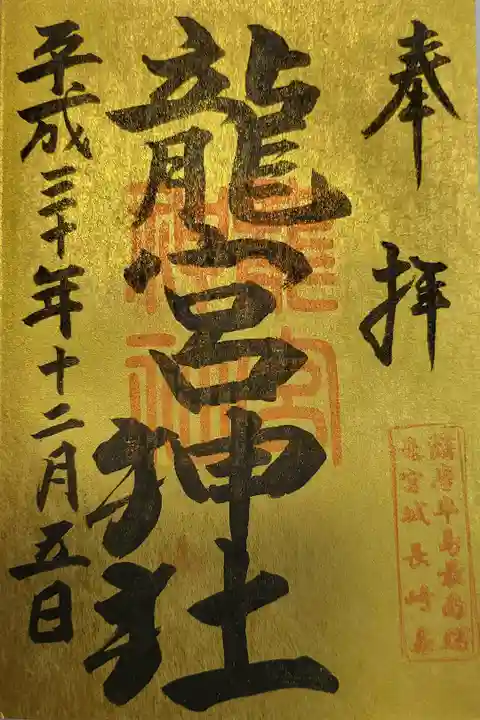 奉拝
龍宮神社
平成三十年十二月五日
薩摩半島最南端
龍宮城 長崎鼻